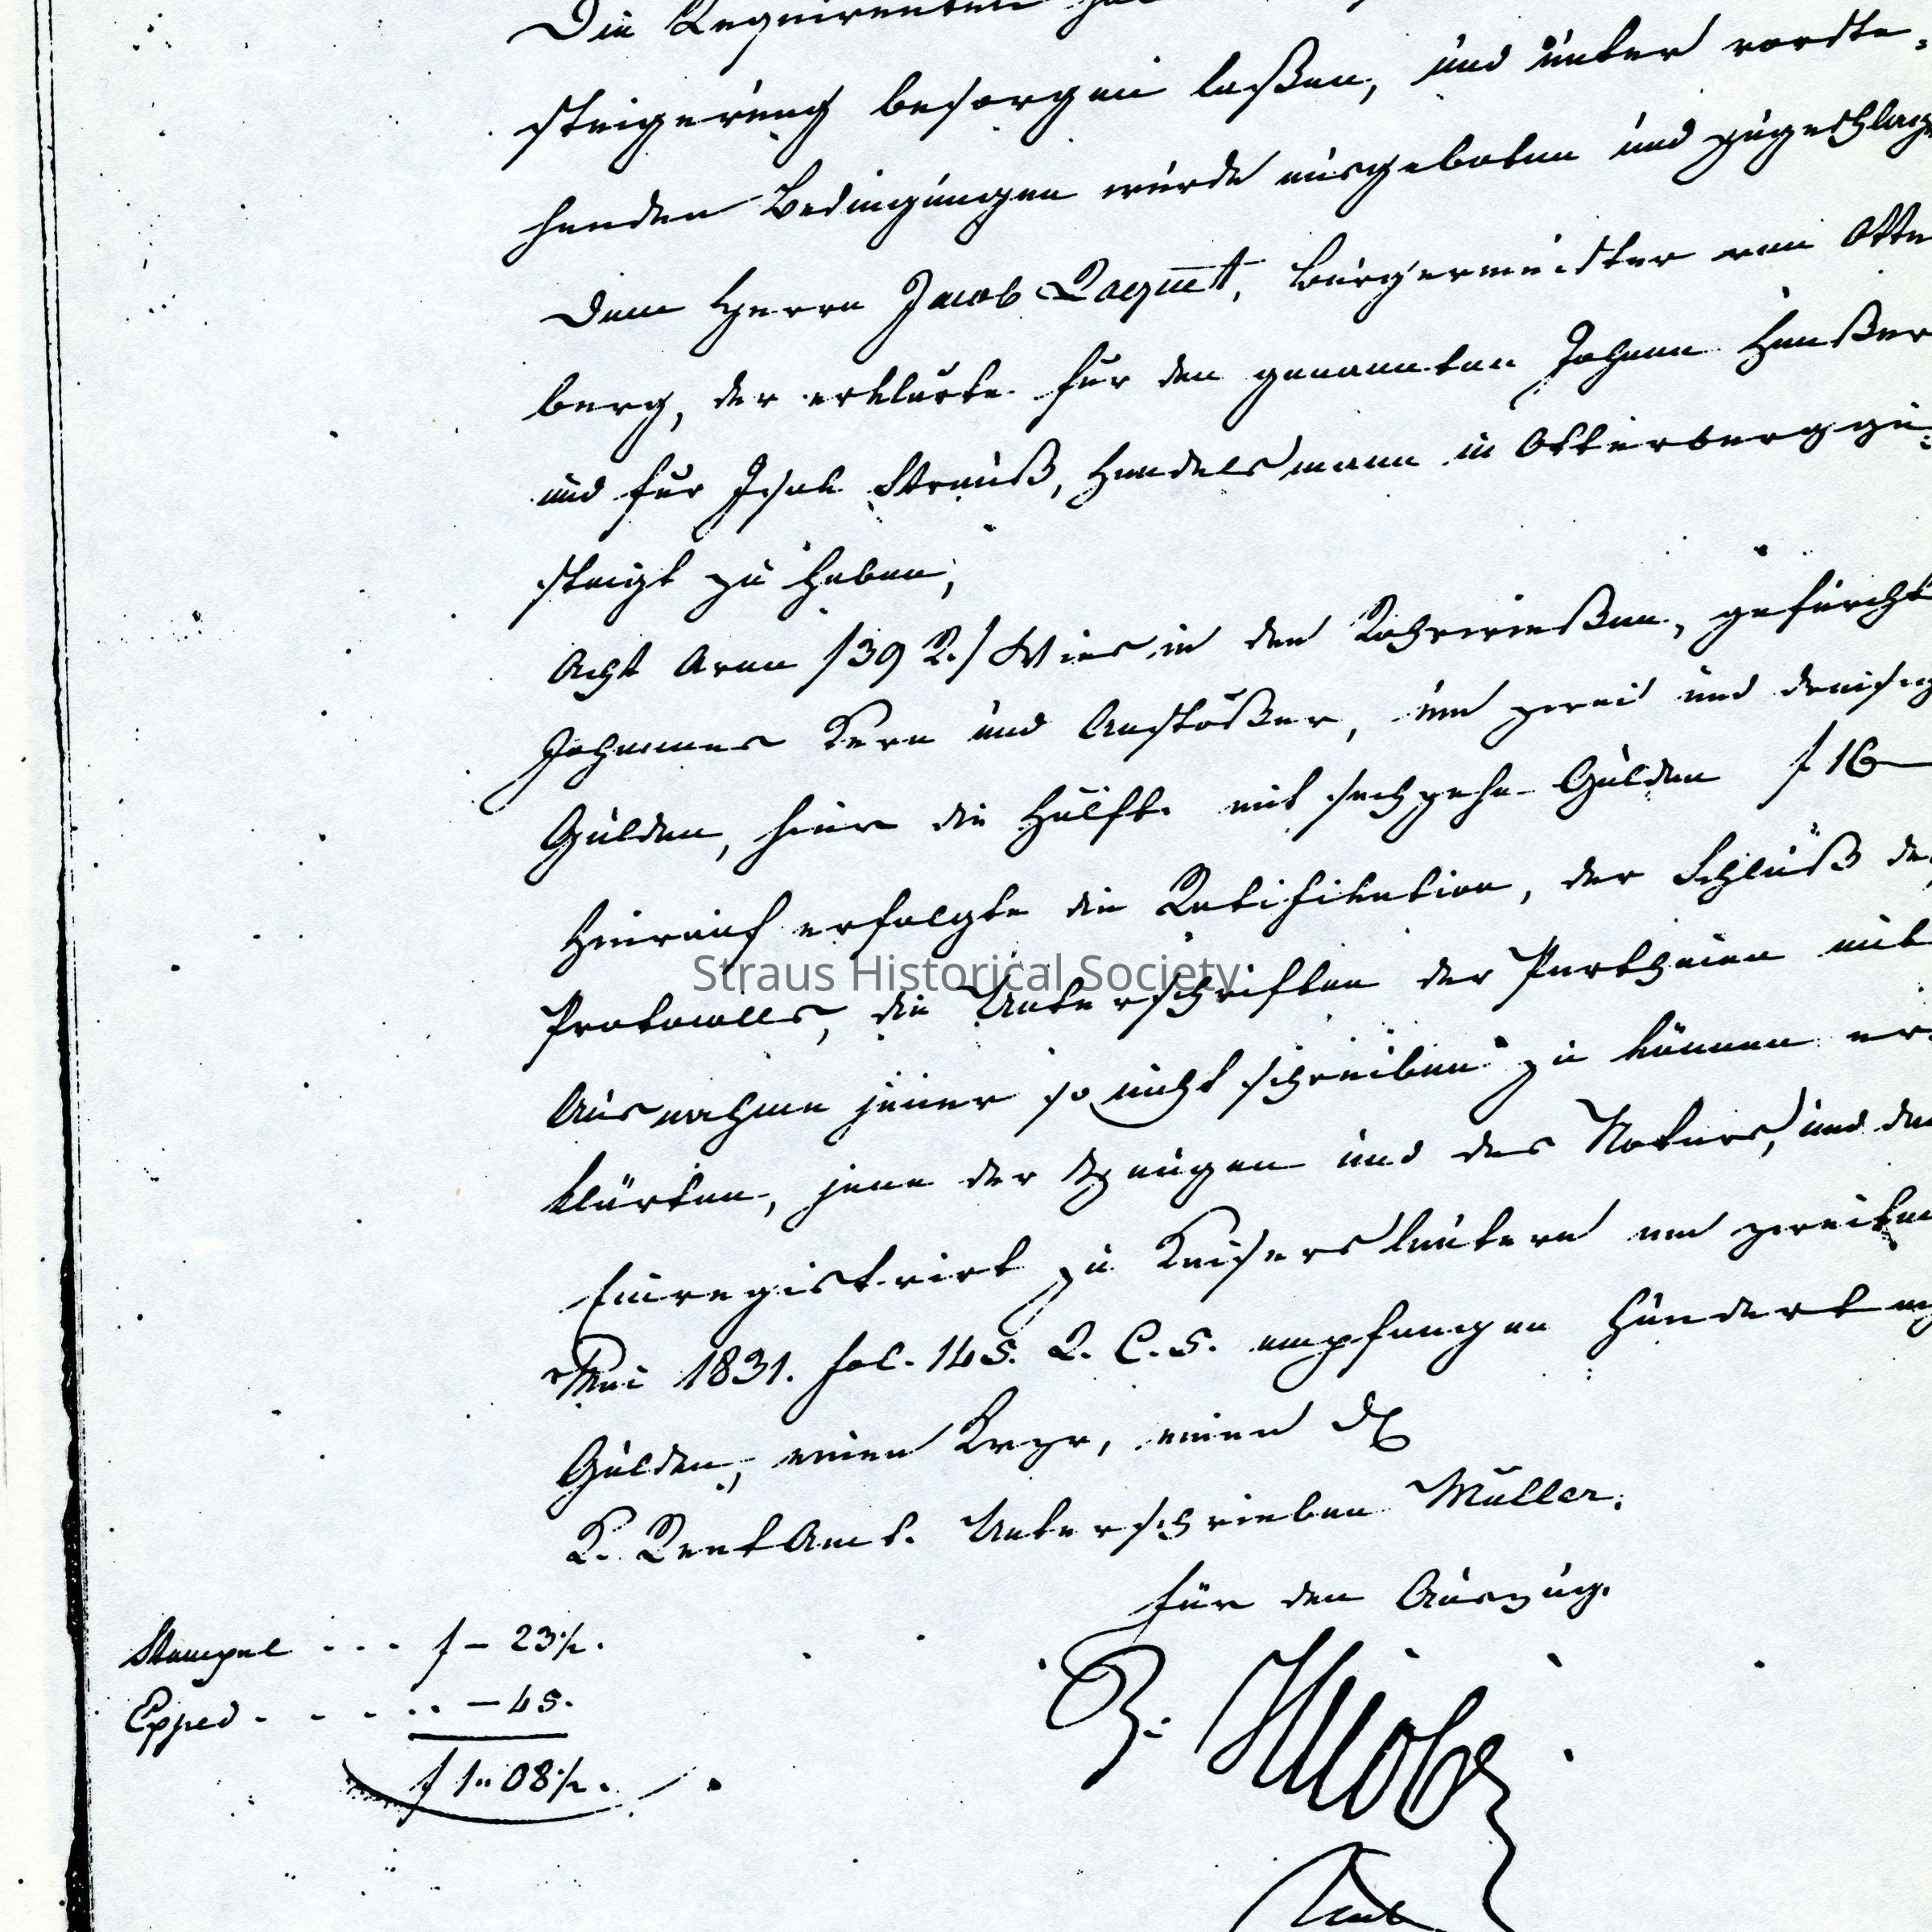 Die Requirenten
steigerung besorgen laßen, und unter vorste-
henden Bedingungen wurde ausgeboten und zugeschlag
Dem Herrn Jacob Raquet, Bürgermeister von Otte
berg, der erklärte für den genannten Johann Haußer
und für Isak Strauß, Handelsmann in Otterberg ge-
steigt zu haben,
Acht Aren /39 R./ Wies in den Rohrwießen, gefurcht
Johannes Kern und Anstößer, um zwei und dreisig
Gulden, hier die Hälfte mit sechzehn Gulden f 16—
Hierauf erfolgte die Ratifikation, der Schluß de
Protocolls, die Unterschriften der Partheien mit
Ausnahme jener so nicht schreiben zu können er-
klärten, jene der Zeugen und des Notars, und de
Einregistrirt zu Kaiserslautern am zweiten
Mai 1831. fol. 145. R. C. 5. empfangen Hundert
Gulden, einen Krzr, einen
K. RentAmt. Unterschrieben Müller.
für den Auszug.
Stempel . . . f — 23½.
Exped . . . . . — 45.
f 1.. 08½.
Straus Historical Society